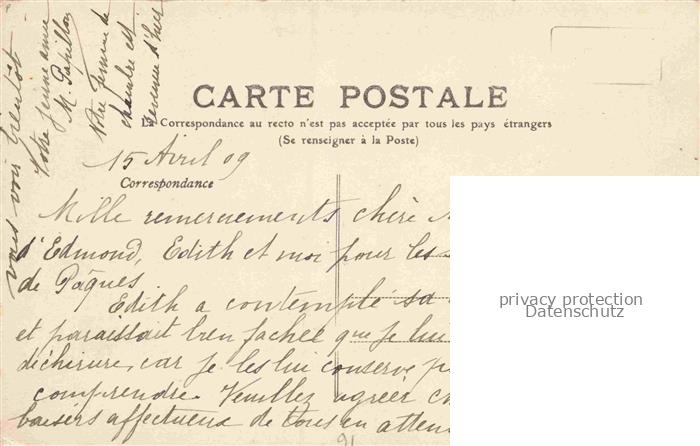 CARTE POSTALE
La Correspondance au recto n'est pas acceptée par tous les pays étrangers
(Se renseigner à la Poste)
15 Avril 09
Correspondance
Mille remerciements chère
d'Edmond, Edith et moi pour les
de Pâques
Edith a contemplé sa
et paraissait bien fachée que je lui
déchirure, car je les lui conserve
comprendre. Veuillez agréer
baisers affectueux de tous en
vous voir bientôt
Votre jeune amie
M. Papillon
Notre femme de
chambre est
revenue d'hier
91
privacy protection
Datenschutz